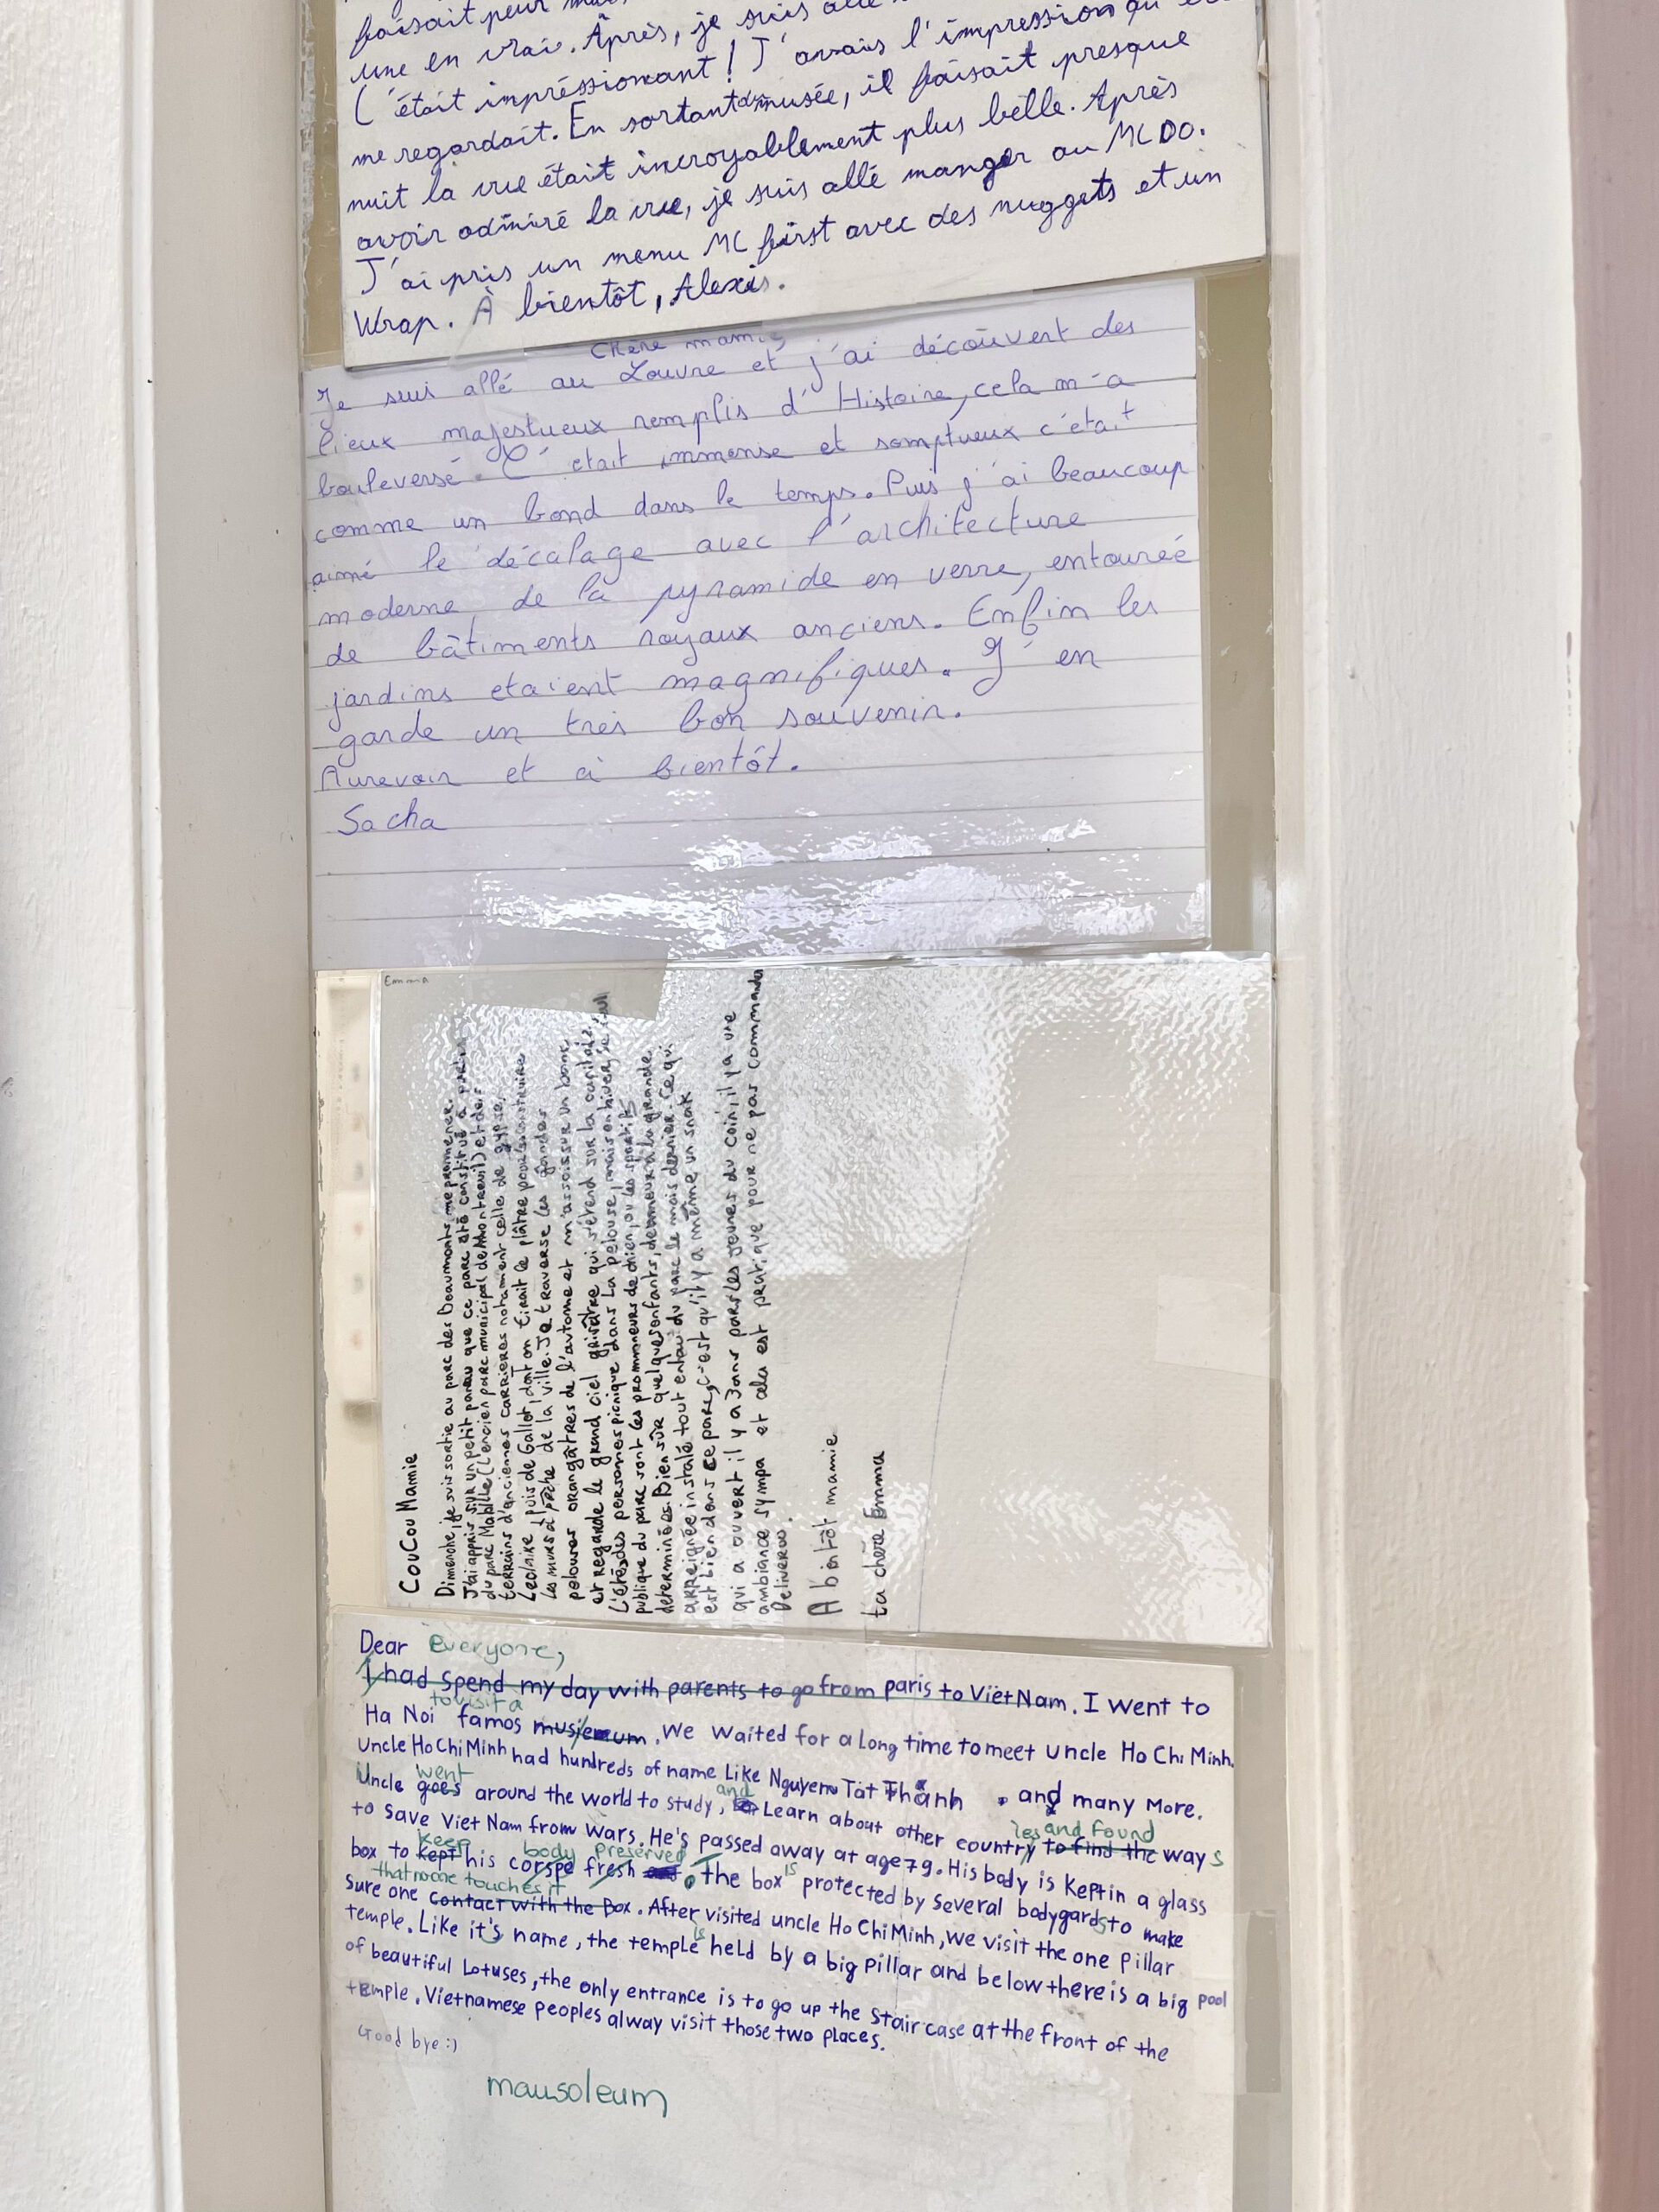 faisait peur
une en vrai. Après, je suis allé
C'était impréssionant ! J'avais l'impression qu'
me regardait. En sortant du musée, il faisait presque
nuit la vue était incroyablement plus belle. Après
avoir admiré la vue, je suis allé manger au MC DO.
J'ai pris un menu MC first avec des nuggets et un
Wrap. À bientôt, Alexis.
Chère mamie,
Je suis allé au Louvre et j'ai découvert des
lieux majestueux remplis d'Histoire, cela m'a
bouleversé. C'était immense et somptueux c'était
comme un bond dans le temps. Puis j'ai beaucoup
aimé le décalage avec l'architecture
moderne, de la pyramide en verre, entourée
de bâtiments royaux anciens. Enfin les
jardins etaient magnifiques. J'en
garde un très bon souvenir.
Aurevoir et à bientôt.
Sacha
Emma
CouCou Mamie
Dimenche, je suis sortie au parc des Beaumonts me promener.
J'ai appris sur un petit panau que ce parc a été constitué à partir
du parc Mabille (L'encien parc municipal de Montreuil) et de
terrains d'anciennes carrières notament celle de gypse,
Leclaire puis de Gallot, dont on tirait le plâtre pour construire
les murs à pêche de la ville. Je traverse les grandes
pelouses orangâtres de l'automne et m'assois sur un banc
et regarde le grand ciel grisâtre qui s'étend sur la capitale.
L'été, des personnes picnique dans la pelouse, mais en hiver, le seul
publique du parc sont les prommeneurs de chien, ou les sportifs
determinées. Bien sûr quelques enfants, demeure à la grande
arreignée instalé tout en haut du parc le mois dernier. Ce qui
est bien dans ce parc, c'est qu'il y a même un snak
qui a ouvert il y a 3 ans par les jeunes du coin, il y a une
ambiance sympa et cela est pratique pour ne pas commander
Deliveroo.
A bientôt mamie
ta chère Emma
Dear Everyone,
I had spend my day with parents to go from paris to Viet Nam. I went to
to visit a
Ha Noi famos musieum. We waited for a long time to meet uncle Ho Chi Minh.
Uncle Ho Chi Minh had hundreds of name Like Nguyen Tat Thanh . and many More.
went and
Uncle goes around the world to study, Learn about other country to find the ways
ies and found
to save Viet Nam from wars. He's passed away at age 79. His body is kept in a glass
keep body preserved
box to kept his corspe fresh. the box is protected by several bodygards to make
that no one touches it
sure one contact with the Box. After visited uncle Ho Chi Minh, we visit the one pillar
temple. Like it's name, the temple is held by a big pillar and below there is a big pool
of beautiful Lotuses, the only entrance is to go up the stair case at the front of the
temple. Vietnamese peoples alway visit those two places.
Good bye :)
mausoleum